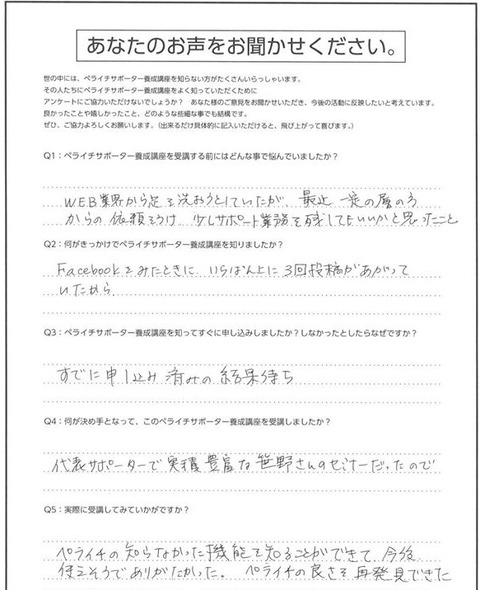 あなたのお声をお聞かせください。
世の中には、ペライチサポーター養成講座を知らない方がたくさんいらっしゃいます。
その人たちにペライチサポーター養成講座をよく知っていただくために
アンケートにご協力いただけないでしょうか？ あなた様のご意見をお聞かせいただき、今後の活動に反映したいと考えています。
良かったことや嬉しかったこと、どのような些細な事でも結構です。
ぜひ、ご協力よろしくお願いします。（出来るだけ具体的に記入いただけると、飛び上がって喜びます。）
Q1：ペライチサポーター養成講座を受講する前にはどんな事で悩んでいましたか？
WEB業界から足を洗おうとしていたが、最近一定の層の方
からの依頼をうけ 少しサポート業務を残してもいいかと思ったこと
Q2：何がきっかけでペライチサポーター養成講座を知りましたか？
Facebookをみたときに、いちばん上に3回投稿があがって
いたから
Q3：ペライチサポーター養成講座を知ってすぐに申し込みしましたか？しなかったとしたらなぜですか？
すでに申し込み済みの結果待ち
Q4：何が決め手となって、このペライチサポーター養成講座を受講しましたか？
代表サポーターで実績豊富な笹野さんのセミナーだったので
Q5：実際に受講してみていかがですか？
ペライチの知らなかった機能を知ることができて、今後
使えそうでありがたかった。 ペライチの良さを再発見できた